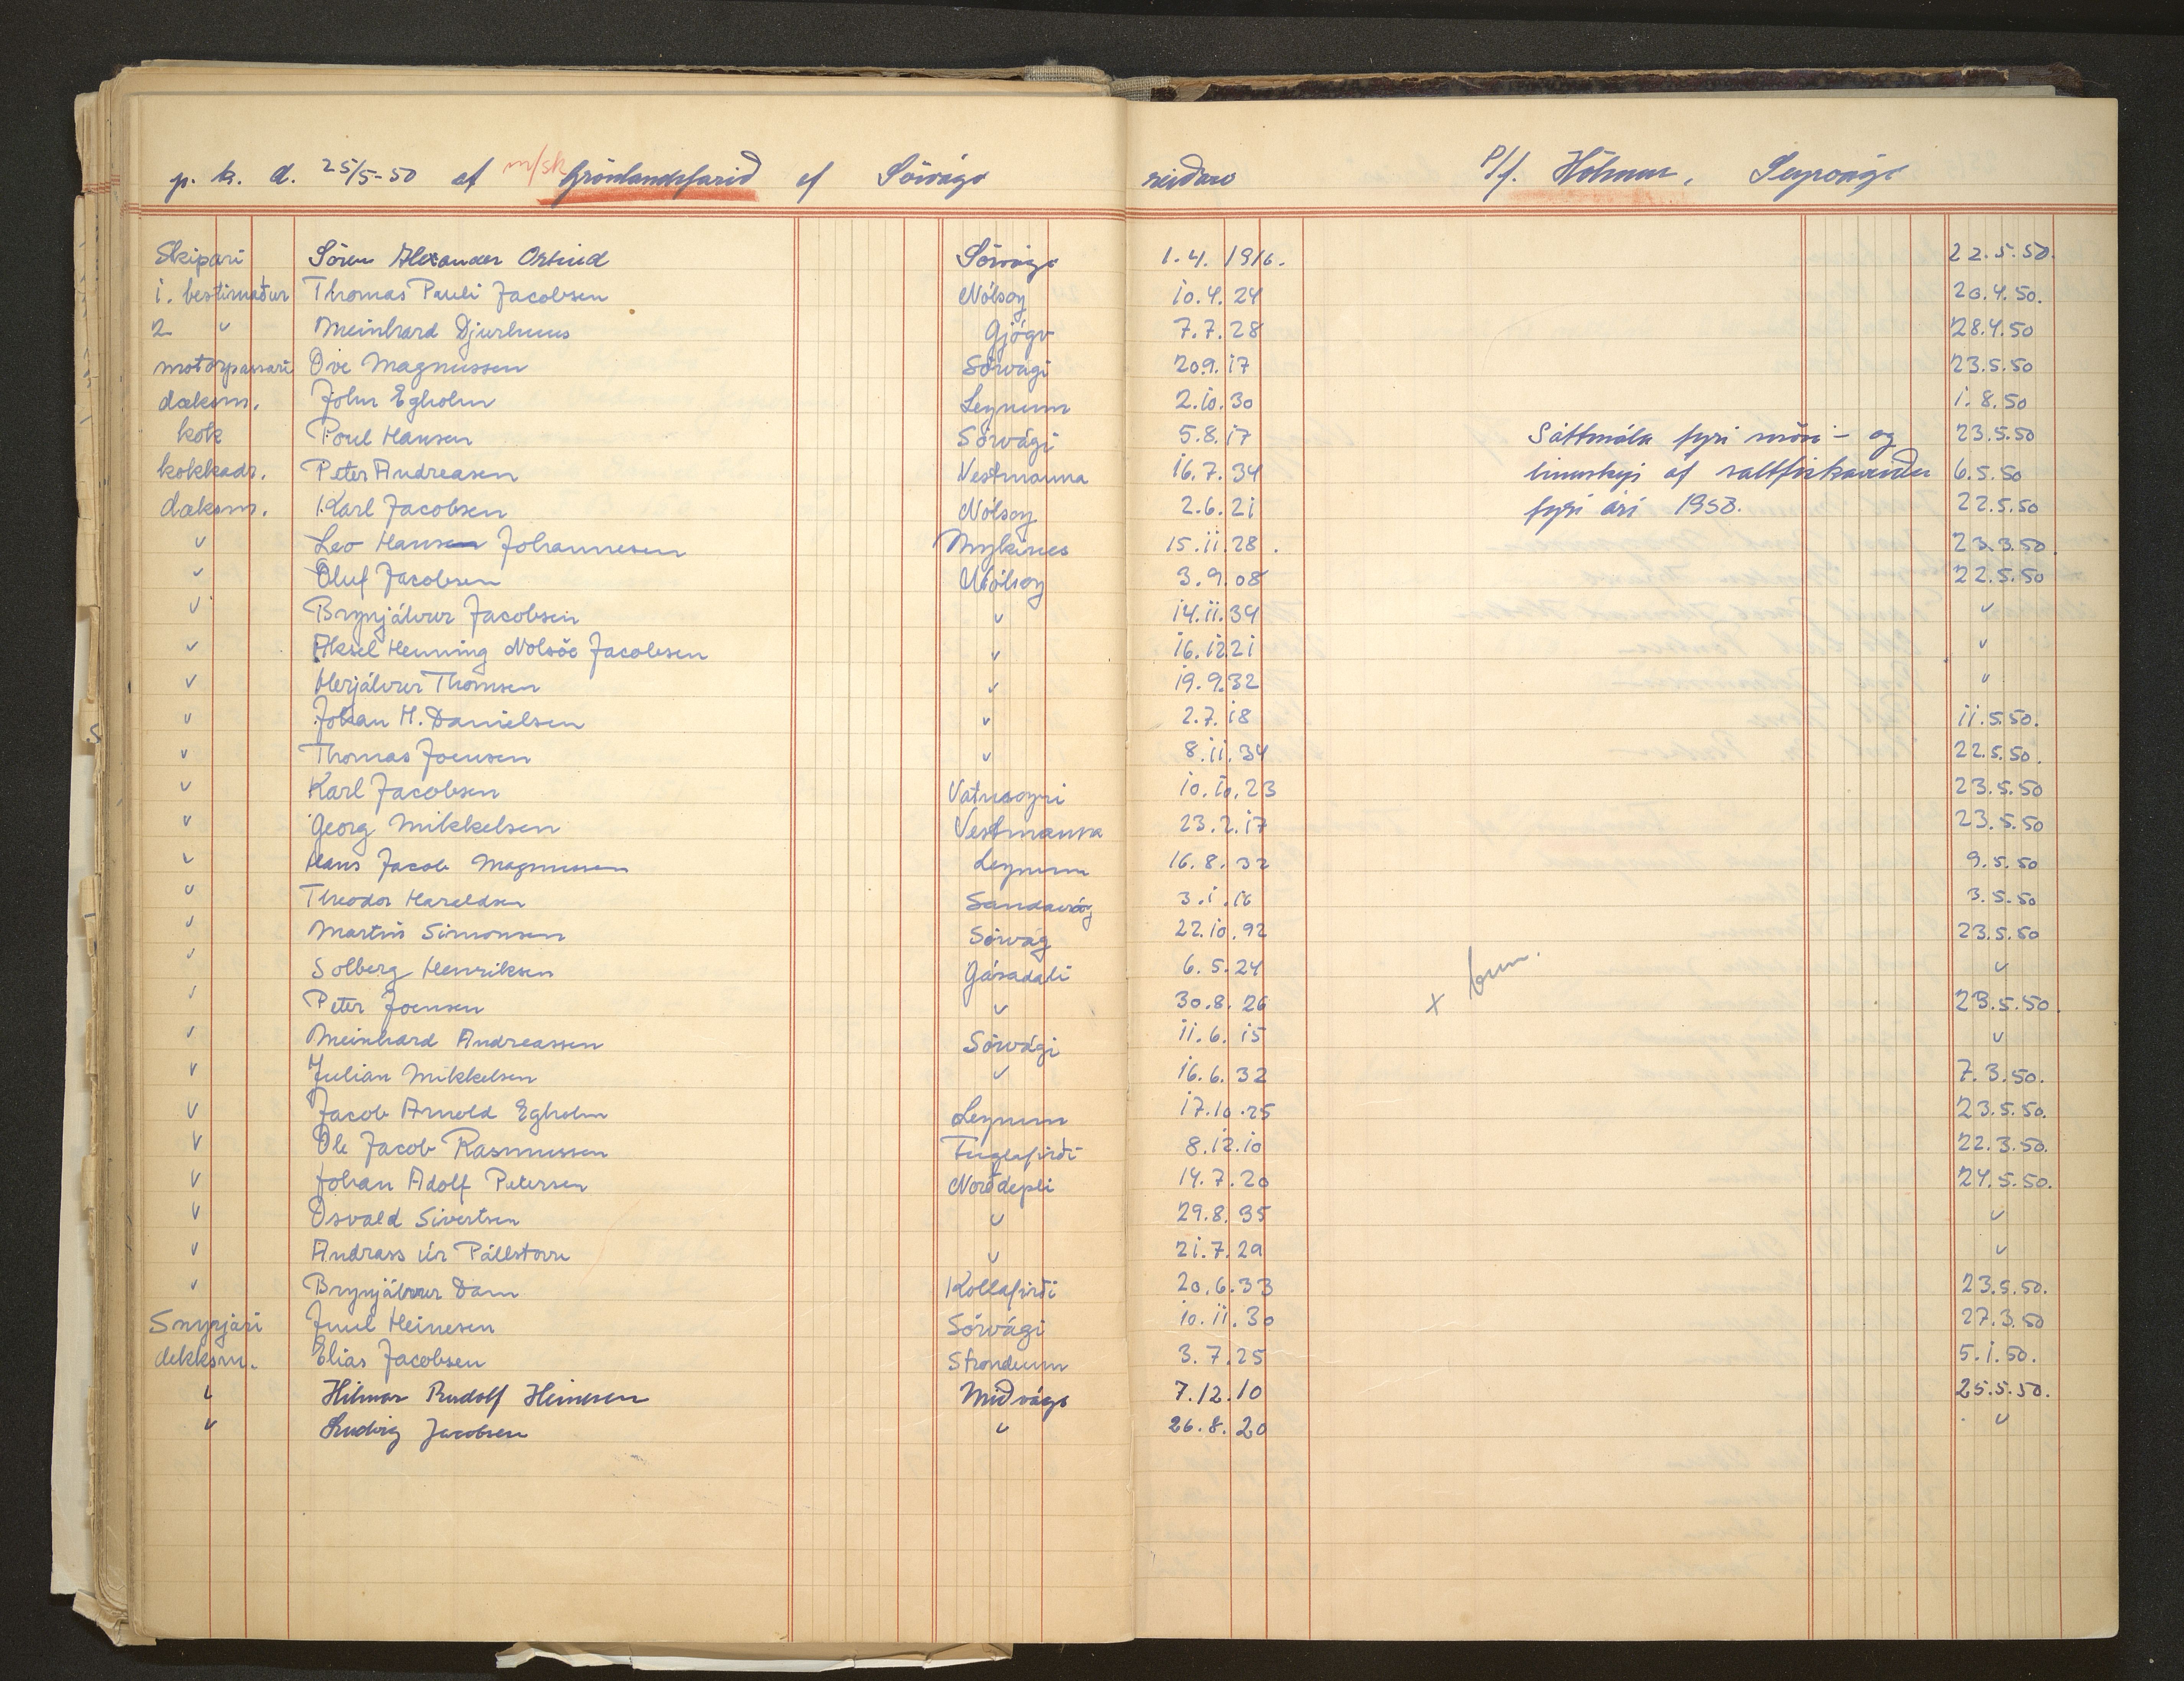 p. k. d. 25/5-50 af m/sk Grönlandsfarið af Sörvágs reiðari P/f. Hólmur, Seyrvágs
Skipari Sören Alexander Ostrud Sörvágs 1.4.1916. 22.5.50.
i. bestimaður Thomas Pauli Jacobsen Nólsoy 10.4.24 20.4.50.
2 " Meinhard Djurhuus Gjógv 7.7.28 28.4.50
motorpassari Ove Magnussen Sörvági 20.9.17 23.5.50
dæksm. John Egholm Leynum 2.10.30 1.8.50
kok Poul Hansen Sörvági 5.8.17 23.5.50
kokkadr. Peter Andreasen Vestmanna 16.7.34 6.5.50
dæksm. Karl Jacobsen Nólsoy 2.6.21 22.5.50
Sáttmála fyri snöri- og
linuskip af saltfiskaveiðu
fyri ári 1950.
" Leo Hansen Johannesen Mykines 15.11.28. 23.3.50.
" Oluf Jacobsen Nólsoy 3.9.08 22.5.50
" Brynjálvur Jacobsen " 14.11.34 "
" Aksel Henning Nolsöe Jacobsen " 16.12.21 "
" Herjálvur Thomsen " 19.9.32 "
" Johan H. Danielsen " 2.7.18 11.5.50.
" Thomas Joensen " 8.11.34 22.5.50.
" Karl Jacobsen Vatnsoyri 10.10.23 23.5.50
" Georg Mikkelsen Vestmanna 23.2.17 23.5.50
" Hans Jacob Magnussen Leynum 16.8.32 9.5.50
" Theodor Haraldsen Sandavág 3.1.16 3.5.50
" Martin Simonsen Sörvág 22.10.92 23.5.50
" Solberg Henriksen Gásadali 6.5.24 "
" Peter Joensen " 30.8.26 x 23.5.50.
" Meinhard Andreassen Sörvági 11.6.15 "
" Julian Mikkelsen " 16.6.32 7.3.50.
" Jacob Arnold Egholm Leynum 17.10.25 23.5.50.
" Ole Jacob Rasmussen Fuglafirði 8.12.10 22.3.50.
" Johan Adolf Petersen Norðdepli 14.7.20 24.5.50.
" Osvald Sivertsen " 29.8.35 "
" Andrass úr Pállstovu " 21.7.29 "
" Brynjálvur Dam Kollafirði 20.6.33 23.5.50.
Smyrjari Juul Heinesen Sörvági 10.11.30 27.3.50
dekksm. Elias Jacobsen Strondum 3.7.25 5.1.50.
" Hilmar Rudolf Heinesen Miðvágs 7.12.10 25.5.50.
" Ludvig Jacobsen " 26.8.20 "